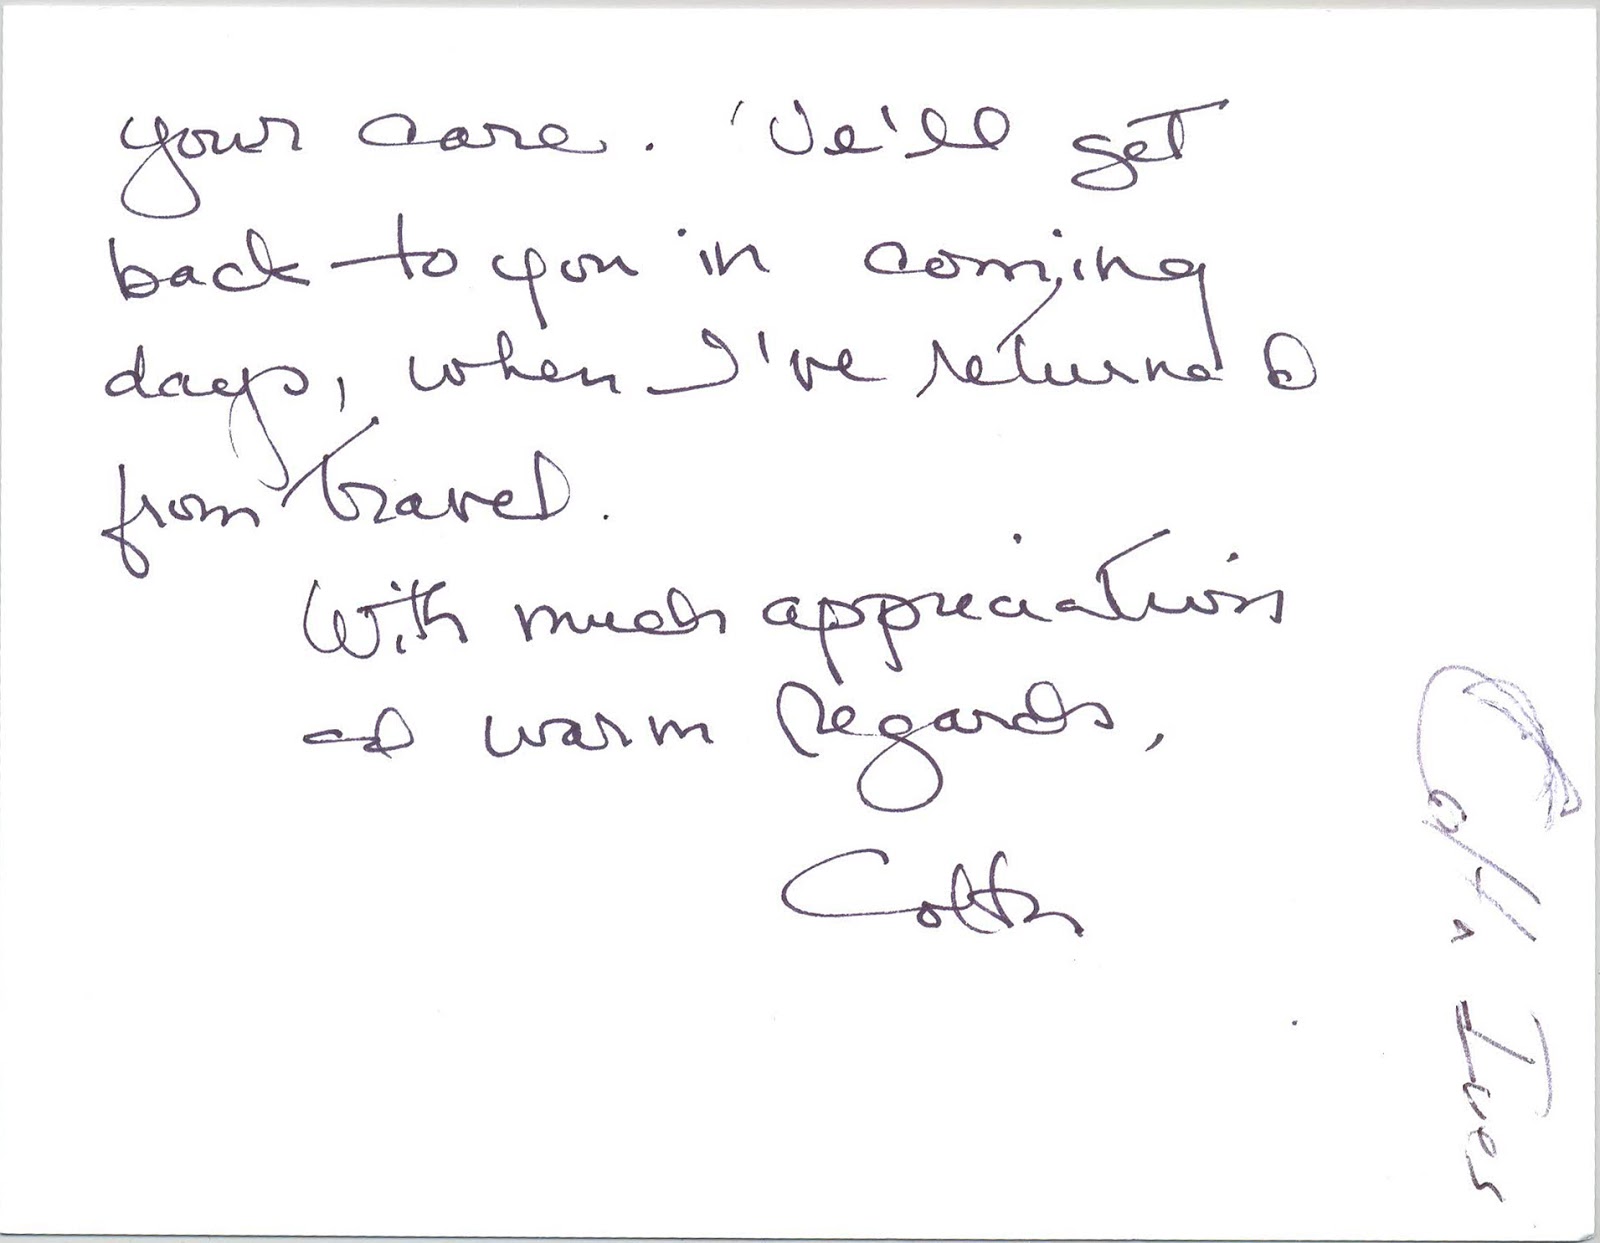 your care. We'll get
back to you in coming
days, when I've returned
from travel.
With much appreciation
and warm regards,
Colta
Colta Ives